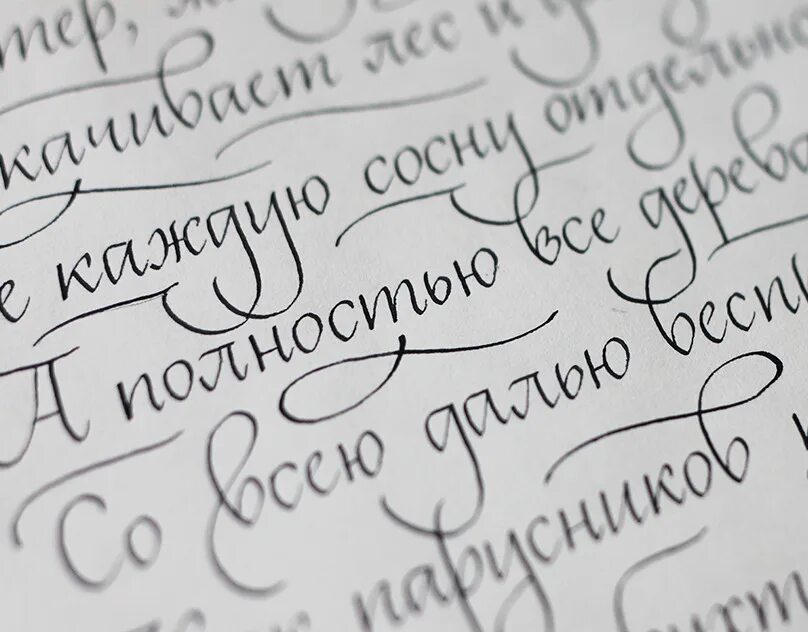 тер, ж
качивает лес и
е каждую сосну отдельно
А полностью все дерева
Со всею далью бесп
парусников к
бухт